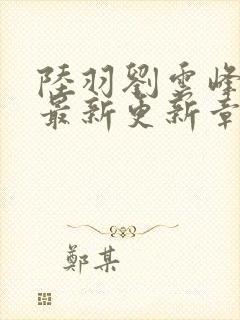 陸羽劉雲峰
最新更新章
鄭某